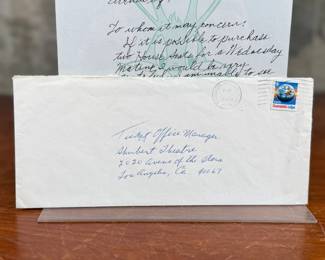 To whom it may concern:
If it is possible to purchase
two House Seats for a Wednesday
Matinee I would be very
unable to see
Ticket Office Manager
Shubert Theatre
2020 Avenue of the Stars
Los Angeles, Ca
90067